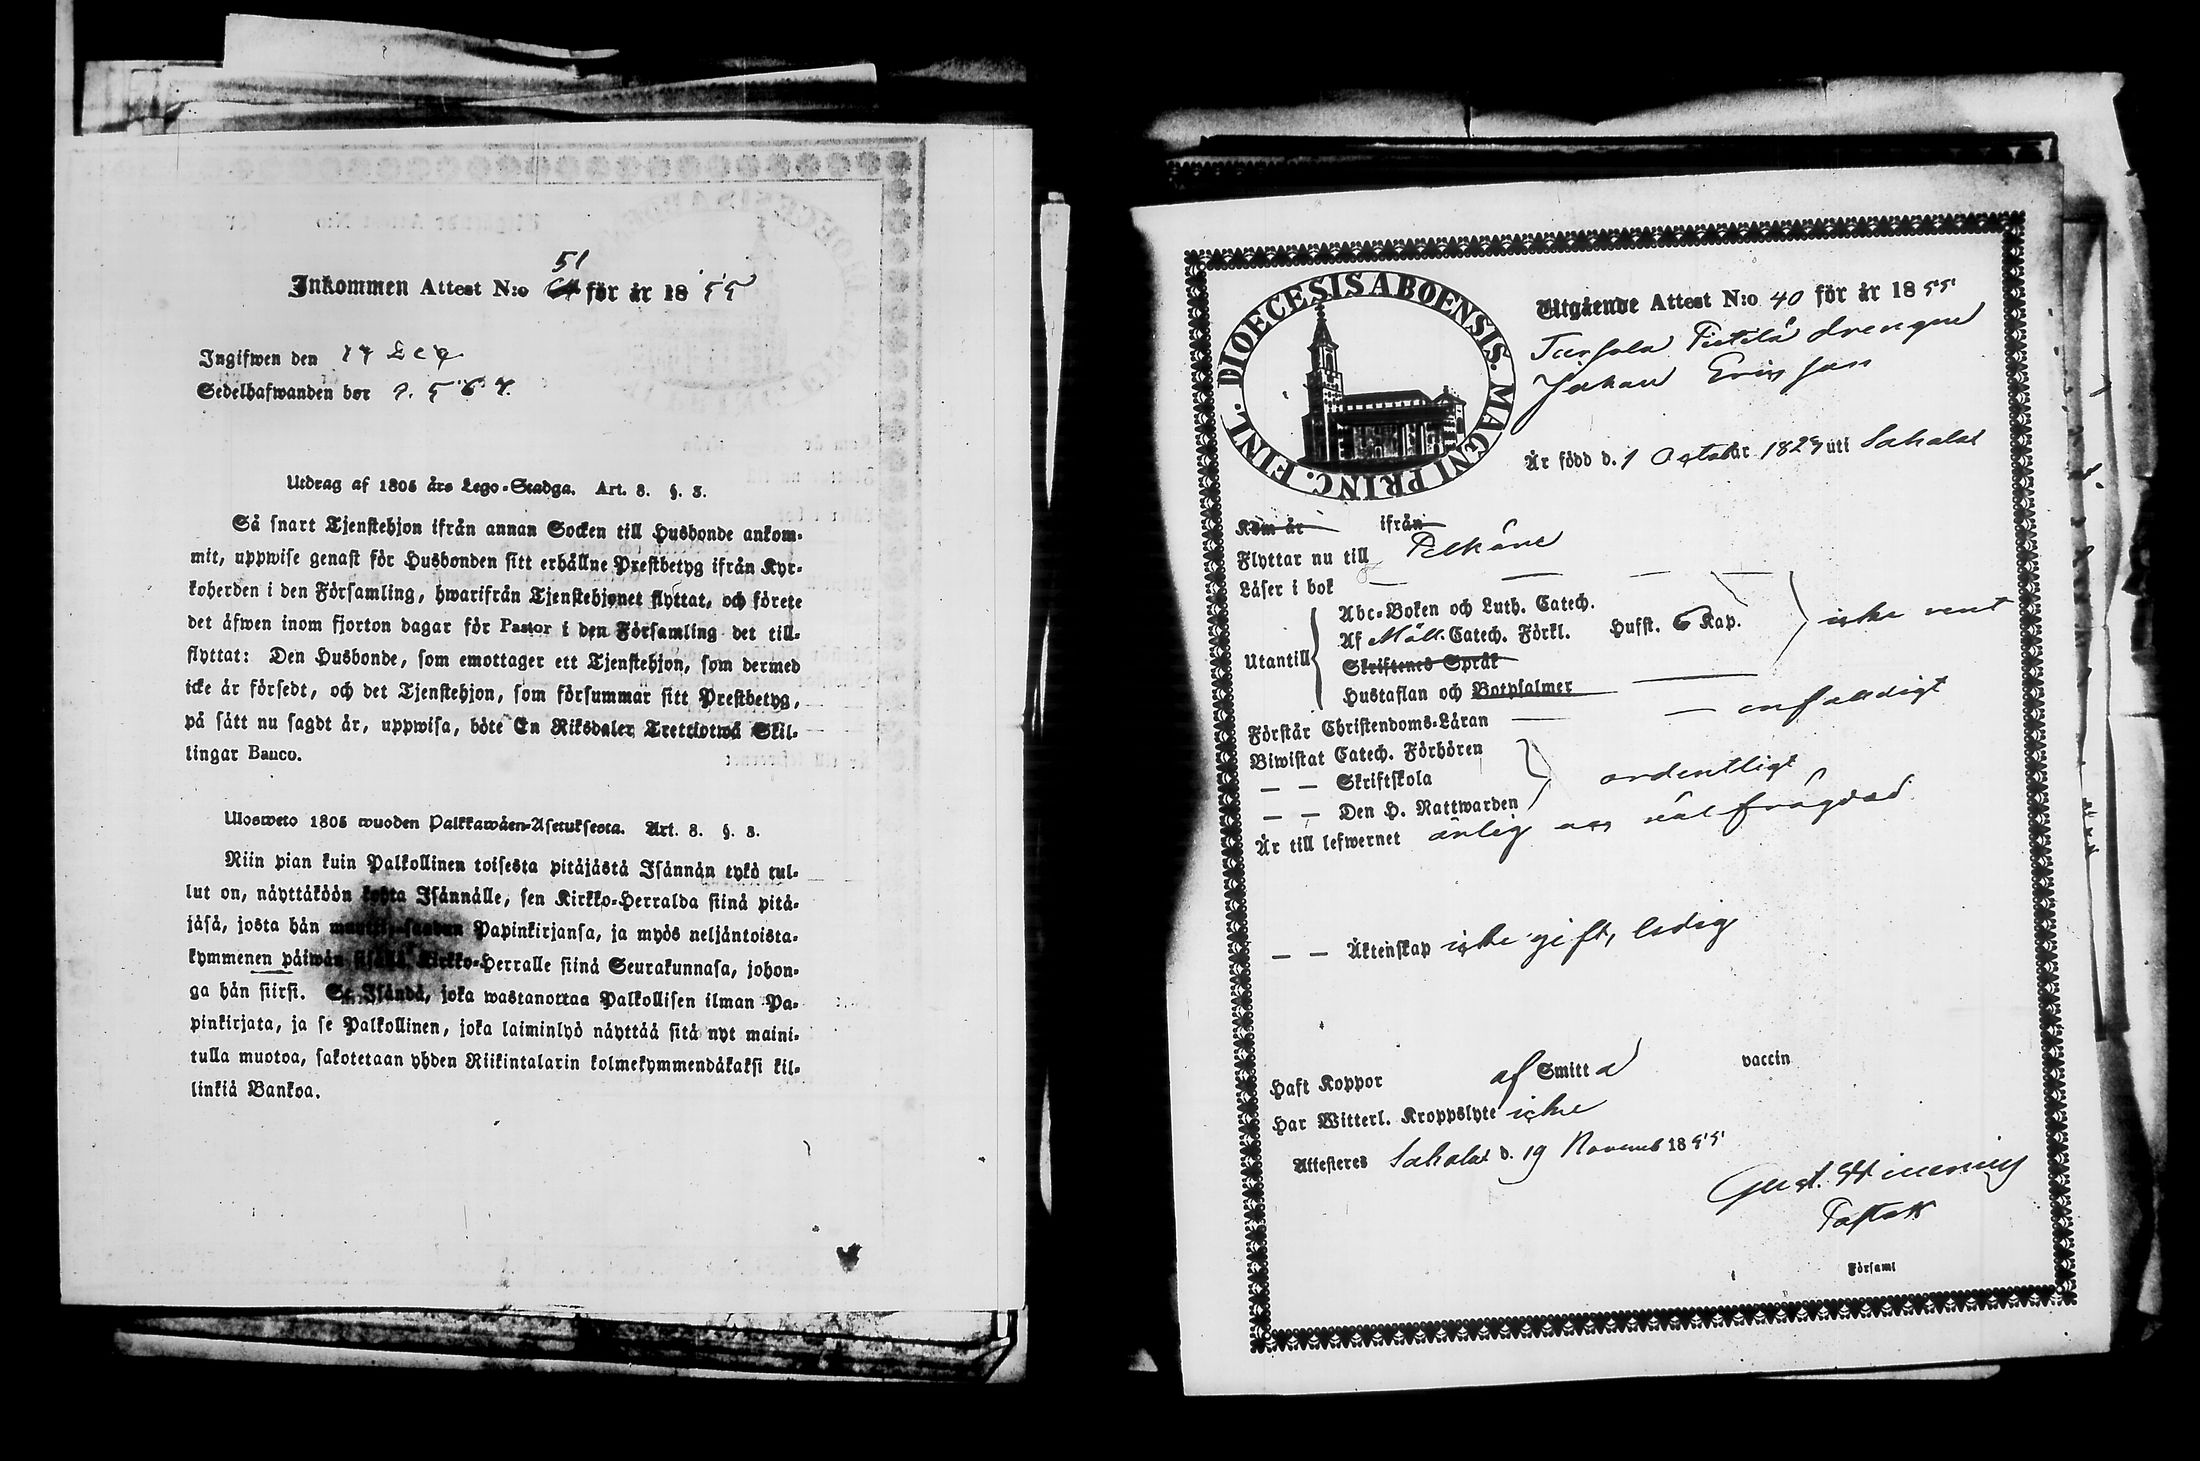 Inkommen Attest N:o 51 för år 1855
Ingifwen den 17 Dec
Sedelhafwanden bor
Utdrag af 1805 års Lego-Stadga. Art. 8. §. 3.
Så snart Tjenstehjon ifrån annan Socken till Husbonde ankom-
mit, uppwise genast för Husbonden sitt erhållne Prestbetyg ifrån Kyr-
koherden i den Församling, hwarifrån Tjenstehjonet flyttat, och förete
det äfwen inom fjorton dagar för Pastor i den Församling det till-
flyttat: Den Husbonde, som emottager ett Tjenstehjon, som dermed
icke är försedt, och det Tjenstehjon, som försummar sitt Prestbetyg,
på sätt nu sagdt är, uppwisa, böte En Riksdaler Trettiotwå Skil-
lingar Banco.
Ulosweto 1805 wuoden Palkkawäen-Asetuksesta. Art. 8. §. 3.
Niin pian kuin Palkollinen toisesta pitäjästä Isännän tykö tul-
lut on, näyttäköön kohta Isännälle, sen Kirkko-Herralda siinä pitä-
jäsä, josta hän Papinkirjansa, ja myös neljäntoista-
kymmenen päiwän sisällä Kirkko-Herralle siinä Seurakunnasa, johon-
ga hän siirsi. Se Isändä, joka wastanottaa Palkollisen ilman Pa-
pinkirjata, ja se Palkollinen, joka laiminlyö näyttää sitä nyt maini-
tulla muotoa, sakotetaan yhden Riikintalarin kolmekymmendäkaksi kil-
linkiä Bankoa.
DIOECESIS ABOENSIS. MAGNI PRINC. FINL.
Utgående Attest N:o 40 för år 1855
Pietilä drengen
Johan Ericsson
Är född d. 1 Octob år 1829 uti Sahalax
Kom år ifrån
Flyttar nu till Pelkäne
Läser i bok
Abc-Boken och Luth. Catech.
Af Möll. Catech. Förkl. Husst. 6 Kap. icke rent
Utantill
Skriftenes Språk
Hustaflan och Botpsalmer
Förstår Christendoms-Läran enfaldigt
Biwistat Catech. Förhören
— — Skriftskola ordentligt
— — Den H. Nattwarden
Är till lefwernet ärlig och väl frägdad
— — Äktenskap icke gift, ledig
Haft Koppor af Smitta vaccin
Har Witterl. Kroppslyte icke
Attesteres Sahalax d. 19 Novemb 1855
Gust. Winning
Pastor
Församl